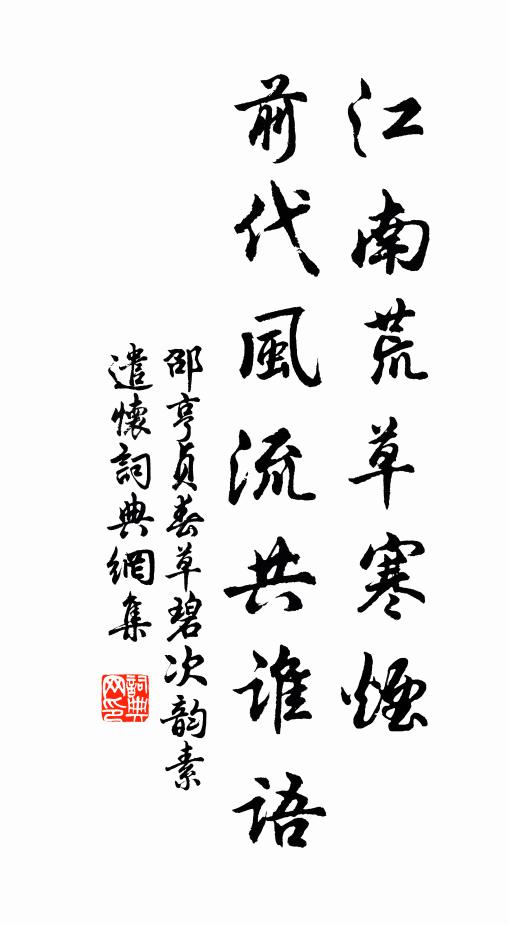 江南荒草寒煙
前代風流共誰語
邵亨貞春草碧次韵素
遣懷詞典網集
詞典网印